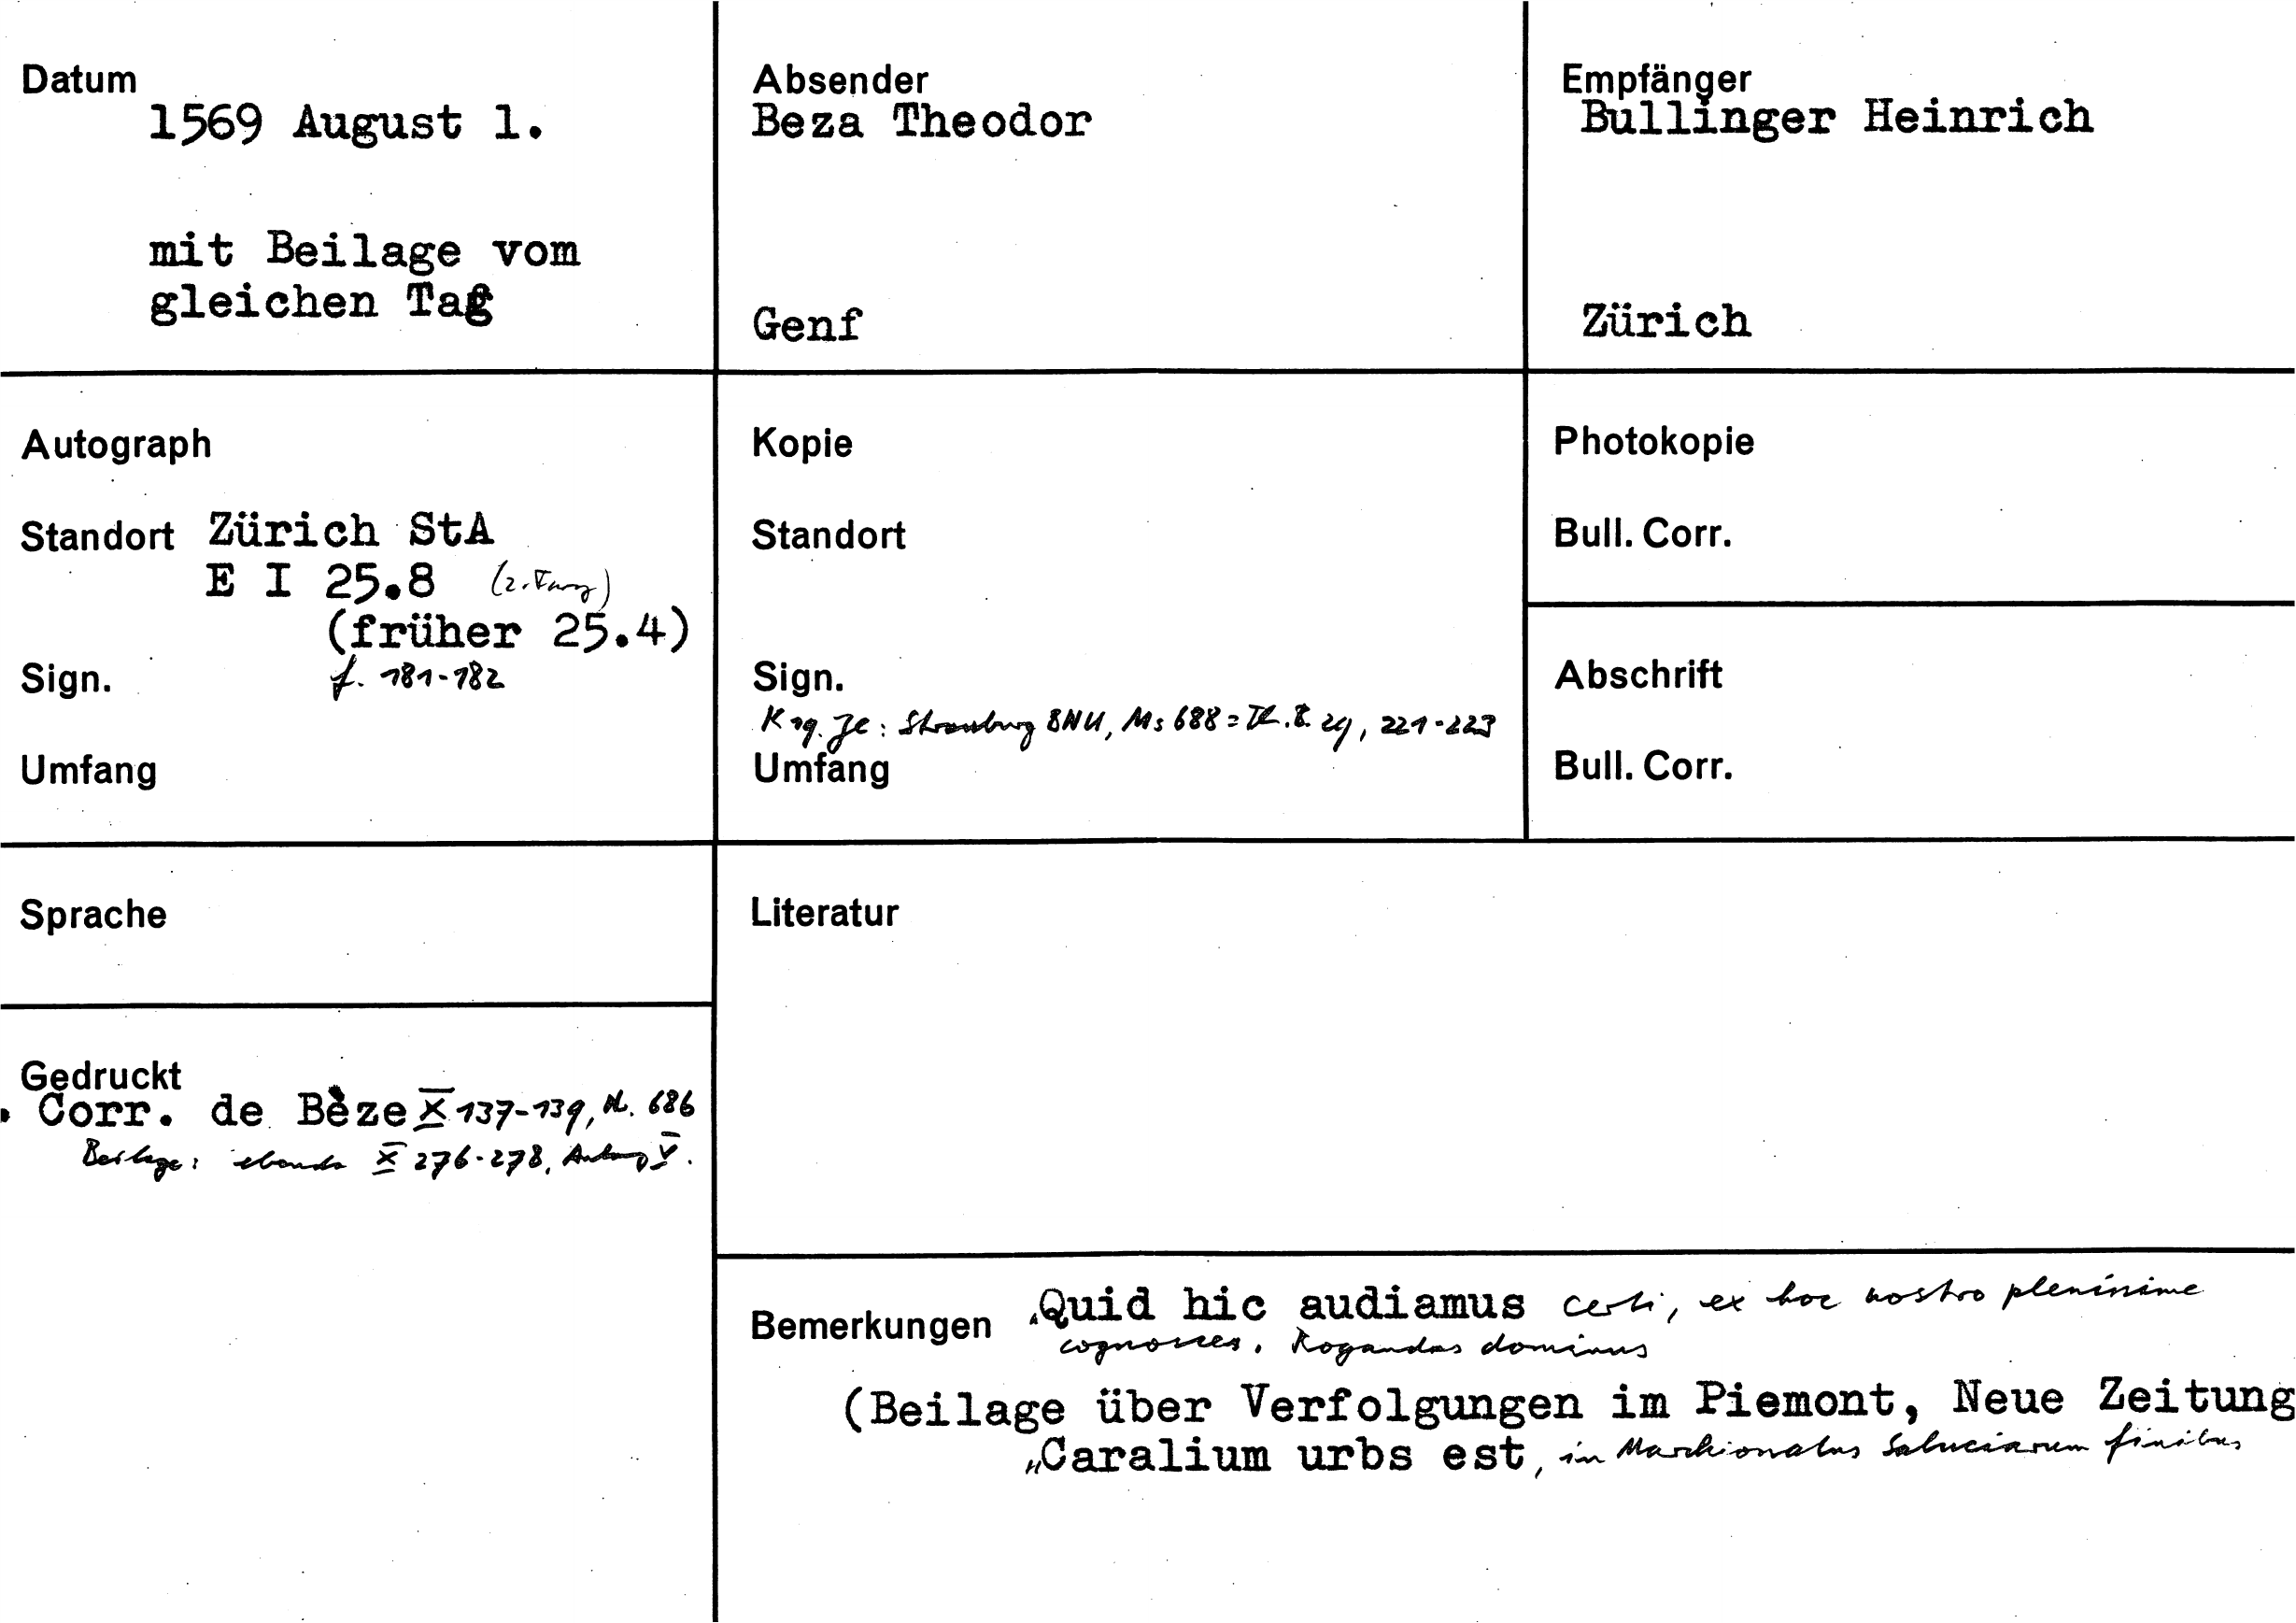 Datum
1569 August 1.
mit Beilage vom
gleichen Tag
Absender
Beza Theodor
Genf
Empfänger
Bullinger Heinrich
Zürich
Autograph
Standort Zürich StA
E I 25.8
(früher 25.4)
Sign. f. 181-182
Umfang
Kopie
Standort
Sign.
K 19. Jh: Strassburg BNU, Ms 688 = Th. B. 29, 221-223
Umfang
Photokopie
Bull. Corr.
Abschrift
Bull. Corr.
Sprache
Literatur
Gedruckt
Corr. de Bèze X 137-139, Nr. 686
Beilage: ebenda X 276-278, Anhang V.
Bemerkungen „Quid hic audiamus certi, ex hoc nostro plenissime
cognosces. Rogandus dominus
(Beilage über Verfolgungen im Piemont, Neue Zeitung
„Caralium urbs est, in Marchionatus Saluciarum finibus